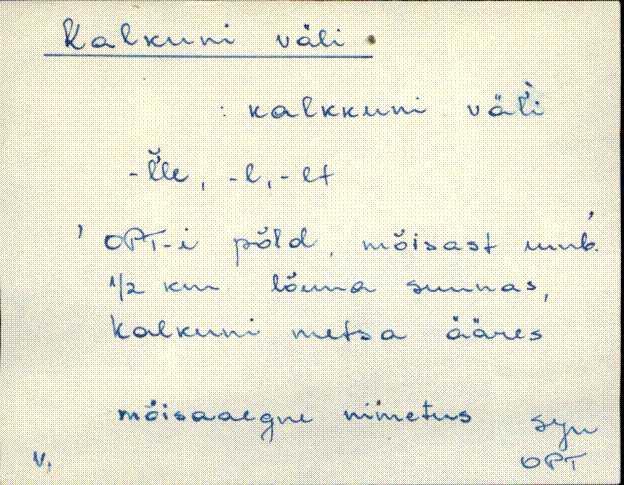 Kalkuni väli.
: kalkkuni väĺi
-l̆le, -l, -lt
' OPT-i põld, mõisast umb.
1/2 km lõuna suunas,
Kalkuni metsa ääres
mõisaaegne nimetus syn
V. OPT